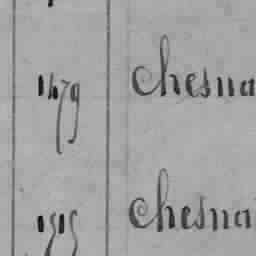 1479 Chesna
1515 Chesna